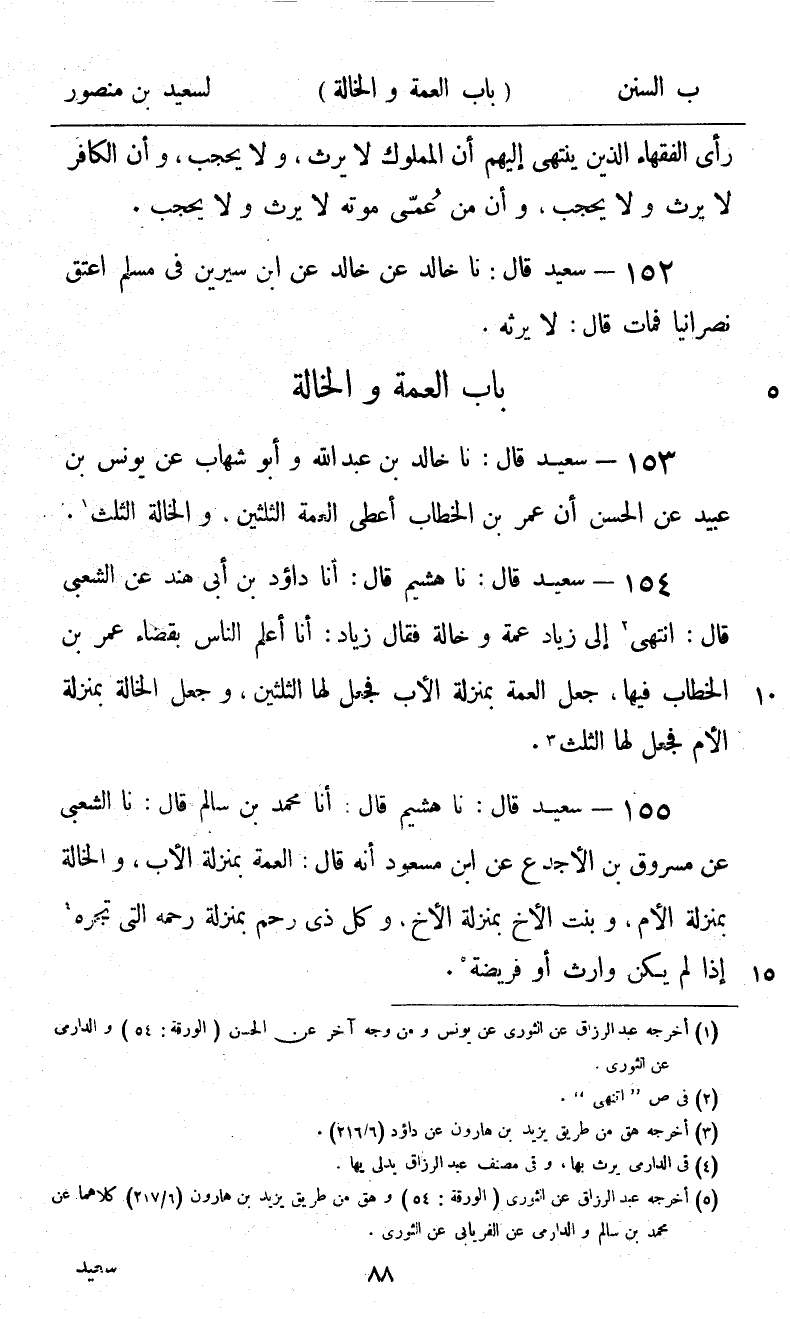 ب السنن ( باب العمة و الخالة ) لسعيد بن منصور
رأى الفقهاء الذين ينتهى إليهم أن المملوك لا يرث ، و لا يحجب ، و أن الكافر
لا يرث و لا يحجب ، و أن من عُمّى موته لا يرث و لا يحجب .
١٥٢ – سعيد قال : نا خالد عن خالد عن ابن سيرين فى مسلم اعتق
نصرانيا فمات قال : لا يرثه .
٥ باب العمة و الخالة
١٥٣ – سعيد قال : نا خالد بن عبد الله و أبو شهاب عن يونس بن
عبيد عن الحسن أن عمر بن الخطاب أعطى العمة الثلثين ، و الخالة الثلث١ .
١٥٤ – سعيد قال : نا هشيم قال : أنا داؤد بن أبى هند عن الشعبى
قال : انتهى٢ إلى زياد عمة و خالة فقال زياد : أنا أعلم الناس بقضاء عمر بن
١٠ الخطاب فيها ، جعل العمة بمنزلة الأب فجعل لها الثلثين ، و جعل الخالة بمنزلة
الأم فجعل لها الثلث٣ .
١٥٥ – سعيد قال : نا هشيم قال : أنا محمد بن سالم قال : نا الشعبى
عن مسروق بن الأجدع عن ابن مسعود أنه قال : العمة بمنزلة الأب ، و الخالة
بمنزلة الأم ، و بنت الأخ بمنزلة الأخ ، و كل ذى رحم بمنزلة رحمه التى تجره٤
١٥ إذا لم يكن وارث أو فريضة٥ .
(١) أخرجه عبد الرزاق عن الثورى عن يونس و من وجه آخر عن الحسن ( الورقة : ٥٤ ) و الدارمى
عن الثورى .
(٢) فى ص " اتنهى " .
(٣) أخرجه هق من طريق يزيد بن هارون عن داؤد (٢١٦/٦) .
(٤) فى الدارمى يرث بها ، و فى مصنف عبد الرزاق يدلى بها .
(٥) أخرجه عبد الرزاق عن الثورى ( الورقة : ٥٤ ) و هق من طريق يزيد بن هارون (٢١٧/٦) كلاهما عن
محمد بن سالم و الدارمى عن الفريابى عن الثورى .
٨٨ سعيد